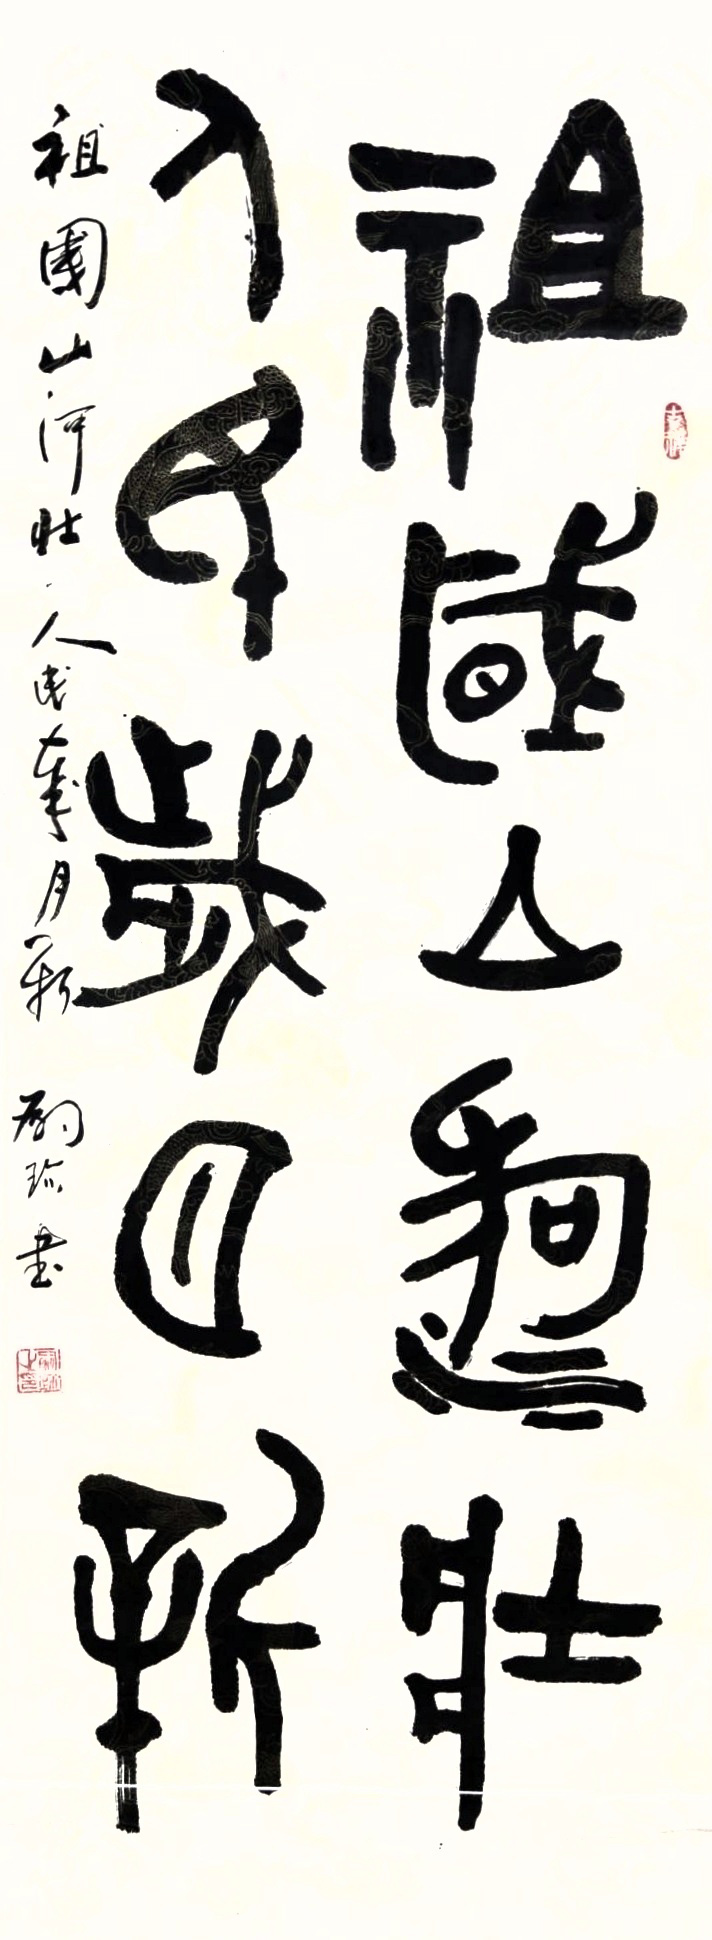 祖國山河壯
人民歲月新
祖國山河壯人民歲月新 書